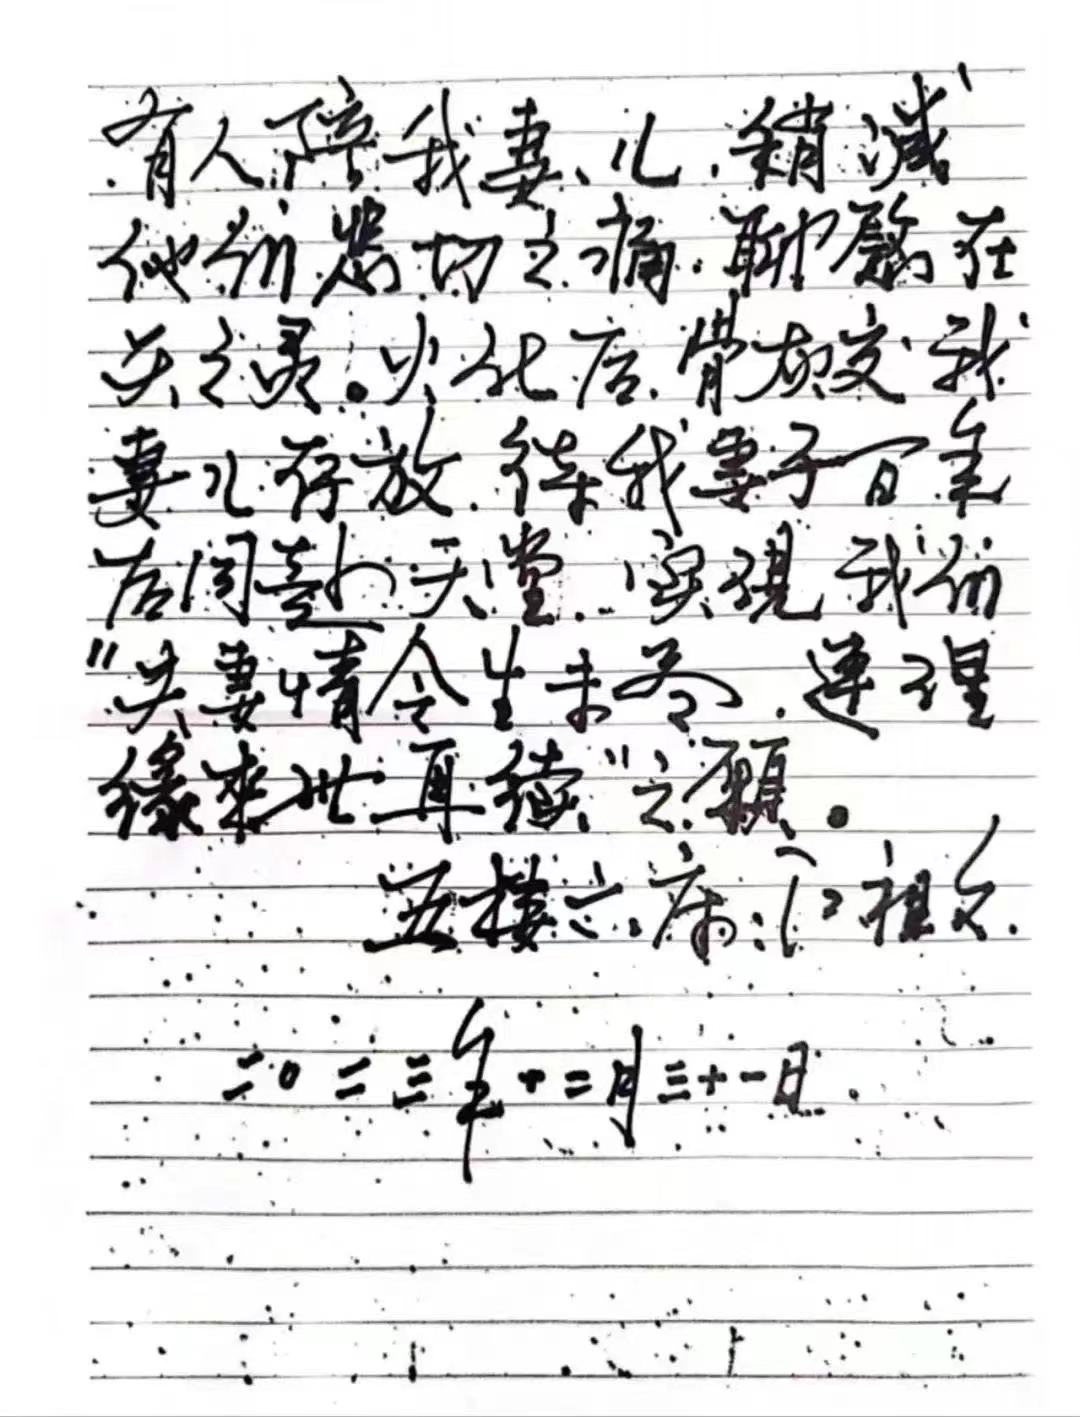 有人陪我妻、儿,稍减
他们悲切之痛,聊慰在
天之灵。火化后,骨灰交我
妻儿存放,待我妻子百年
后同赴天堂,实现我们
"夫妻情今生未尽,连理
缘来世再续"之愿。
五楼六床:江祖
二〇二三年十二月三十一日